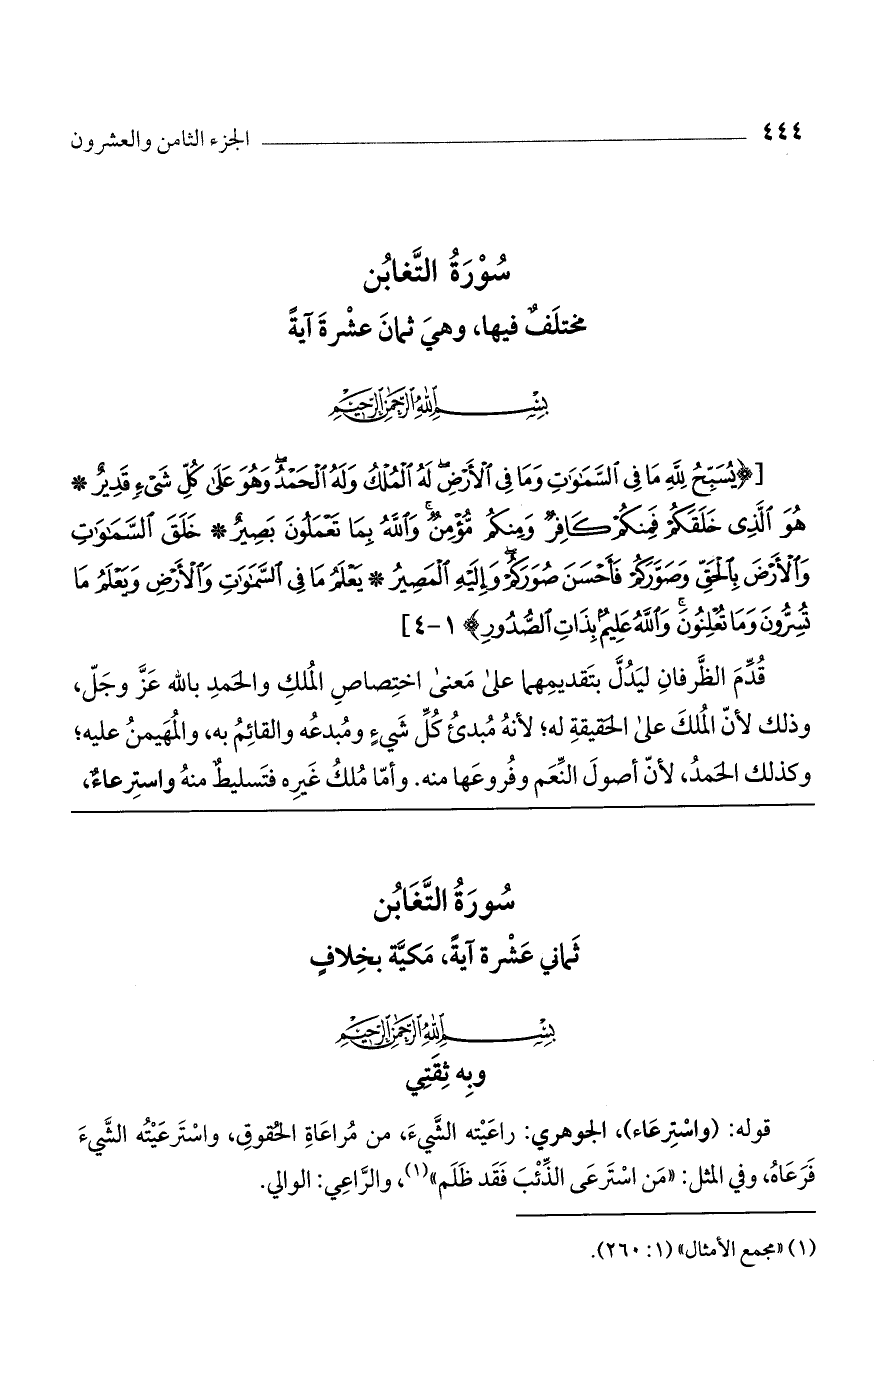 ٤٤٤ الجزء الثامن والعشرون
سُوْرَةُ التَّغابُن
مختلَفٌ فيها، وهيَ ثمانَ عشْرةَ آيةً
بِسْمِ ٱللَّهِ ٱلرَّحْمَٰنِ ٱلرَّحِيمِ
[﴿يُسَبِّحُ لِلَّهِ مَا فِى ٱلسَّمَٰوَٰتِ وَمَا فِى ٱلْأَرْضِۖ لَهُ ٱلْمُلْكُ وَلَهُ ٱلْحَمْدُۖ وَهُوَ عَلَىٰ كُلِّ شَىْءٍ قَدِيرٌ *
هُوَ ٱلَّذِى خَلَقَكُمْ فَمِنكُمْ كَافِرٌ وَمِنكُم مُّؤْمِنٌۚ وَٱللَّهُ بِمَا تَعْمَلُونَ بَصِيرٌ * خَلَقَ ٱلسَّمَٰوَٰتِ
وَٱلْأَرْضَ بِٱلْحَقِّ وَصَوَّرَكُمْ فَأَحْسَنَ صُوَرَكُمْۖ وَإِلَيْهِ ٱلْمَصِيرُ * يَعْلَمُ مَا فِى ٱلسَّمَٰوَٰتِ وَٱلْأَرْضِ وَيَعْلَمُ مَا
تُسِرُّونَ وَمَا تُعْلِنُونَۚ وَٱللَّهُ عَلِيمٌۢ بِذَاتِ ٱلصُّدُورِ﴾ ١-٤]
قُدِّمَ الظَّرفانِ ليَدُلَّ بتَقديمِهما علىٰ مَعنىٰ اختِصاصِ المُلكِ والحَمدِ بالله عَزَّ وجَلّ،
وذلك لأنّ المُلكَ علىٰ الحَقيقةِ له؛ لأنهُ مُبدئُ كُلِّ شَيءٍ ومُبدعُه والقائِمُ به، والمُهَيمنُ عليه؛
وكذلك الحَمدُ، لأنّ أصولَ النِّعَم وفُروعَها منه. وأمّا مُلكُ غَيرِه فتَسليطٌ منهُ واستِرعاءٌ،
سُورَةُ التَّغَابُن
ثَماني عَشْرة آيةً، مَكيَّة بخِلافٍ
بِسْمِ ٱللَّهِ ٱلرَّحْمَٰنِ ٱلرَّحِيمِ
وبِه ثِقَتِي
قوله: (واسْتِرعَاء)، الجوهري: راعَيْته الشَّيءَ، من مُراعَاةِ الحُقوقِ، واسْتَرعَيْتُه الشَّيءَ
فَرَعَاهُ، وفي المثل: «مَن اسْتَرعَى الذِّئْبَ فَقَد ظَلَم»(١)، والرَّاعِي: الوالي.
(١) «مجمع الأمثال» (١: ٢٦٠).